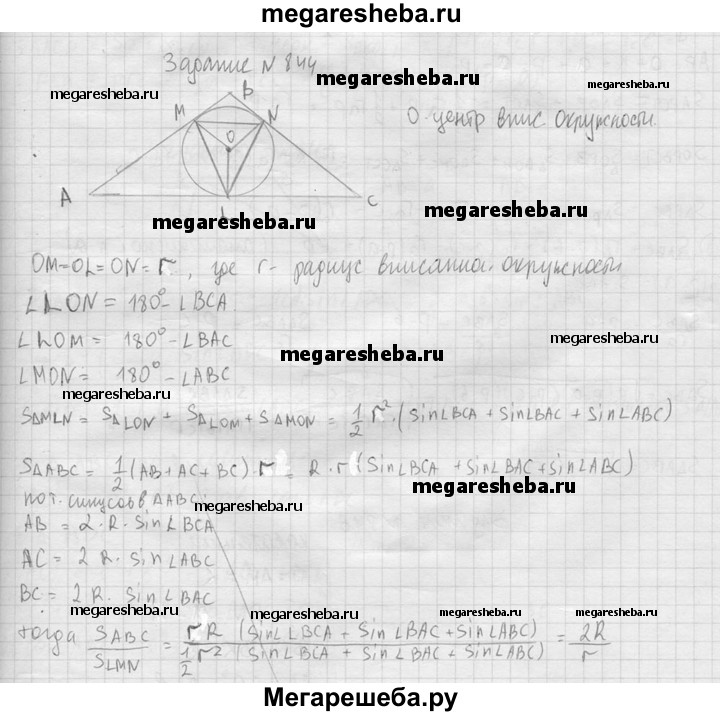 megaresheba.ru
Задание N 844
megaresheba.ru
megaresheba.ru
B
M
N
O
O - центр впис. окружности.
A
L
C
megaresheba.ru
megaresheba.ru
OM=OL=ON= r, где r - радиус вписанной окружности
∠LON = 180° - ∠BCA.
∠LOM = 180° - ∠BAC
megaresheba.ru
megaresheba.ru
∠MON = 180° - ∠ABC
megaresheba.ru
S△MLN = S△LON + S△LOM + S△MON = 1/2 r². (Sin∠BCA + Sin∠BAC + Sin∠ABC)
S△ABC = 1/2 (AB + AC + BC) · r = R · r (Sin∠BCA + Sin∠BAC + sin∠ABC)
megaresheba.ru
по т. синусов в △ABC:
megaresheba.ru
AB = 2·R·Sin∠BCA
AC = 2 R· Sin∠ABC
BC = 2 R. Sin∠BAC
megaresheba.ru
megaresheba.ru
megaresheba.ru
тогда S ABC / S LMN = r R (Sin∠BCA + Sin∠BAC + Sin∠ABC) / 1/2 r² (Sin∠BCA + Sin∠BAC + Sin∠ABC) = 2R / r
Мегарешеба.ру